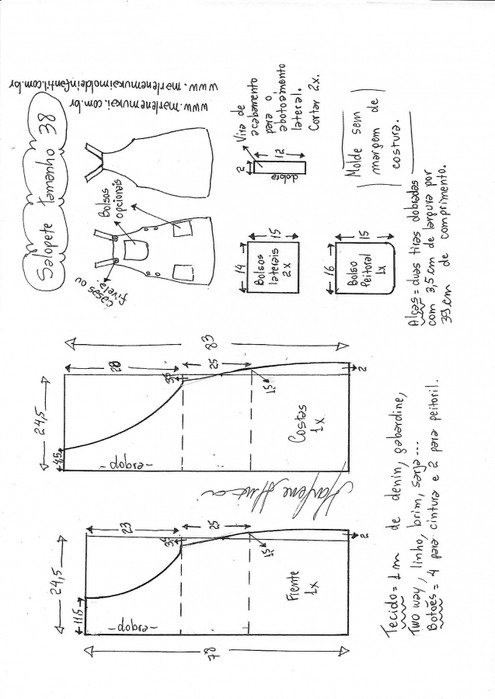 Salopete tamanho 38
www.marlenemukai.com.br
www.marlenemukaimoldeinfantil.com.br
Casas ou
fivela
Bolsos
opcionais
Vira de
acabamento
para o
abotoamento
lateral.
Cortar 2x.
2
12
dobra
Molde sem
margem de
costura.
14
15
Bolsos
laterais
2x
16
15
Bolso
Peitoral
1x
Alças = duas tiras dobradas
com 3,5 cm de largura por
39 cm de comprimento.
83
20
25
24,5
4,5
3,5
1,5
2
-dobra-
Costas
1x
23
25
24,5
11,5
3,5
1,5
2
-dobra-
Frente
1x
78
Tecido = 1 m de denin, gabardine,
Two way, linho, brim, sarja...
Botões = 4 para cintura e 2 para peitoril.